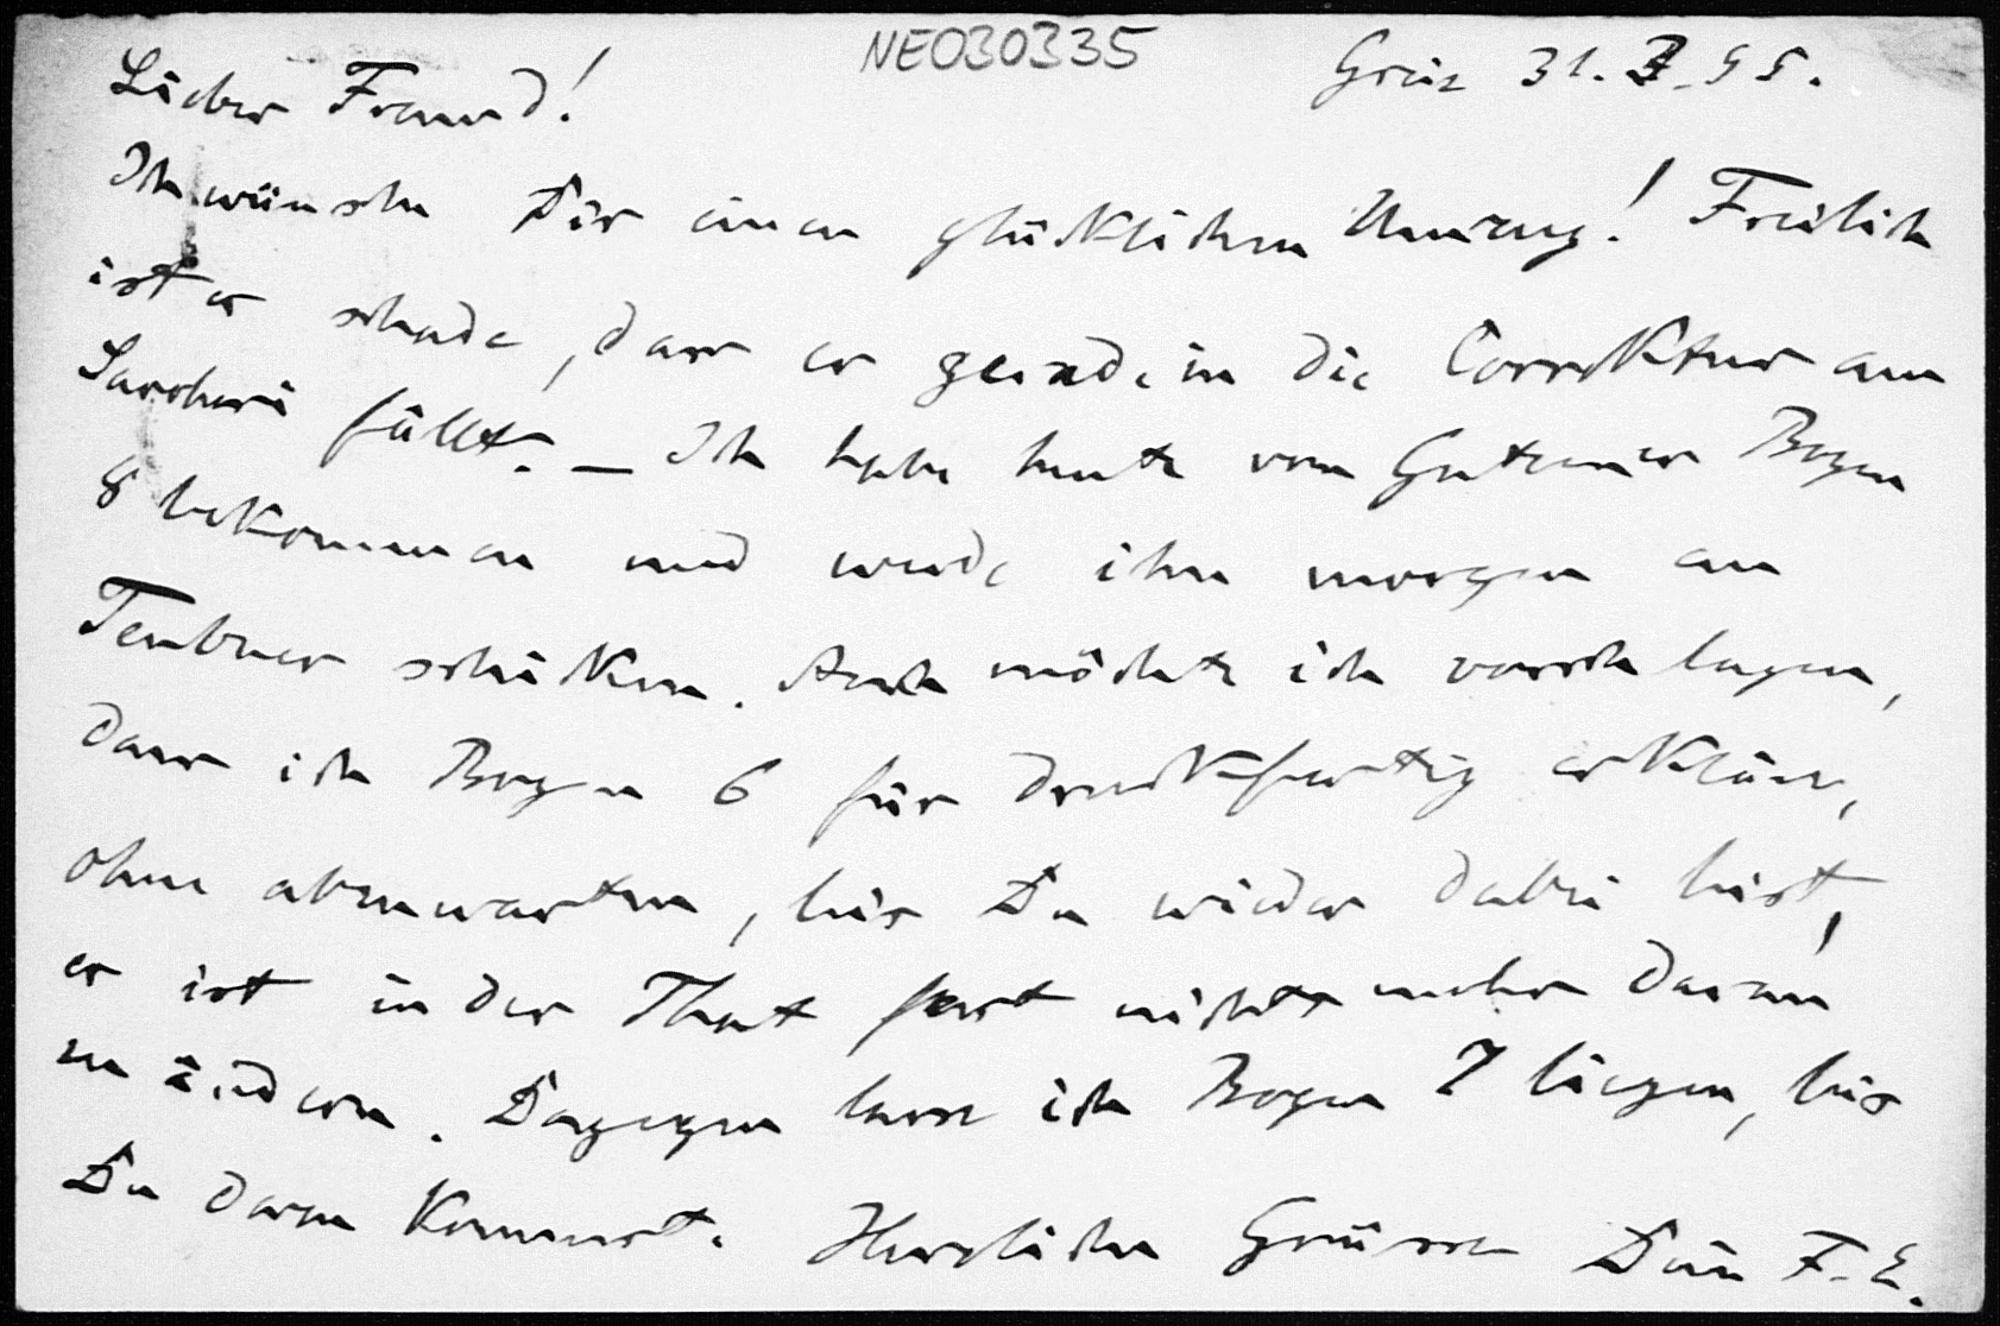 NE030335
Greiz 31. 3. 95.
Lieber Freund!
Ich wünsche Dir einen glücklichen Umzug! Freilich
ist es schade, dass er gerade in die Correktur am
Saccheri fällt. – Ich habe heute von Gutzmer Bogen
8 bekommen und werde ihn morgen an
Teubner schicken. Auch möchte ich vorschlagen,
dass ich Bogen 6 für druckfertig erkläre,
ohne abzuwarten, bis Du wieder dabei bist,
es ist in der That fast nichts mehr daran
zu ändern. Dagegen lasse ich Bogen 7 liegen, bis
Du daran kommst. Herzliche Grüsse Dein F. E.